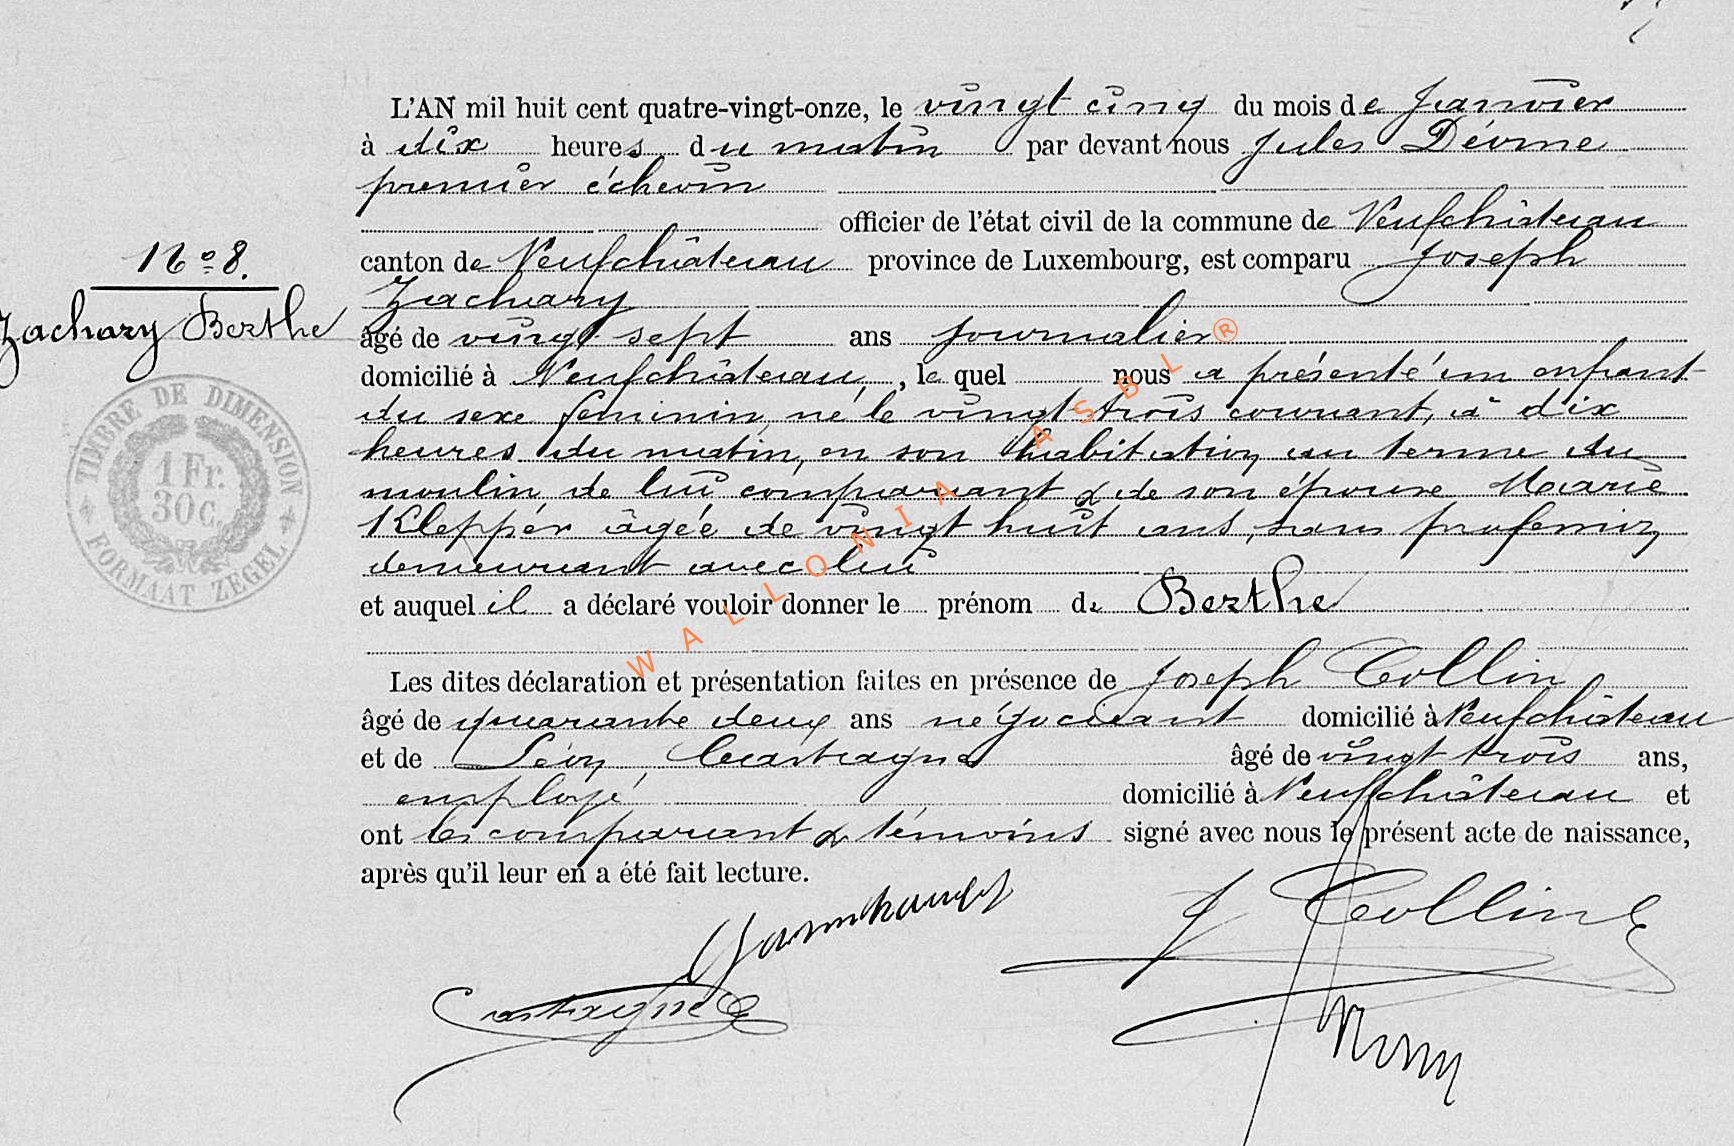 L'AN mil huit cent quatre-vingt-onze, le vingt cinq du mois de Janvier
à dix heures du matin par devant nous Jules
premier échevin
officier de l'état civil de la commune de Neufchâteau
N° 8.
canton de Neufchâteau province de Luxembourg, est comparu Joseph
Zachary
Zachary Berthe
âgé de vingt sept ans journalier
domicilié à Neufchâteau, , le quel nous a présenté un enfant
du sexe féminin, né le vingt trois courant, à dix
heures du matin, en son habitation au terme du
moulin de lui comparant & de son épouse Marie
Klepper âgée de vingt huit ans, sans profession
demeurant avec lui
TIMBRE DE DIMENSION
1 Fr.
30 C.
FORMAAT ZEGEL
et auquel il a déclaré vouloir donner le prénom de Berthe
Les dites déclaration et présentation faites en présence de Joseph Collin
âgé de quarante deux ans négociant domicilié à Neufchâteau
et de Léon Castaigne âgé de vingt trois ans,
employé domicilié à Neufchâteau et
ont les comparant & témoins signé avec nous le présent acte de naissance,
après qu'il leur en a été fait lecture.
J Collin
Castaigne
WALLONIA ASBL®